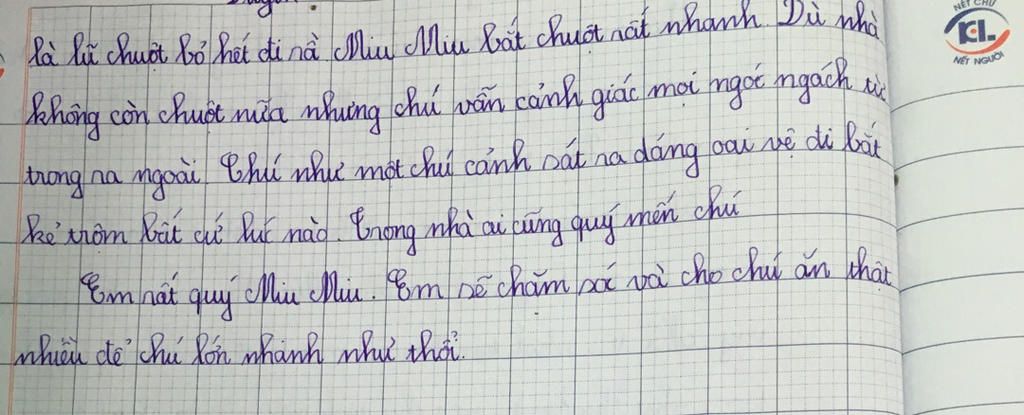 NÉT CHỮ
KL
NÉT NGƯỜI
là lũ chuột bỏ hết đi nà. Miu Miu bắt chuột rất nhanh. Dù nhà
không còn chuột nữa nhưng chú vẫn cảnh giác mọi ngóc ngách từ
trong ra ngoài. Chú như một chú cảnh sát ra dáng oai vệ đi bắt
kẻ trộm bất cứ lúc nào. Trong nhà ai cũng quý mến chú
Em rất quý Miu Miu. Em sẽ chăm sóc và cho chú ăn thật
nhiều để chú lớn nhanh như thổi.